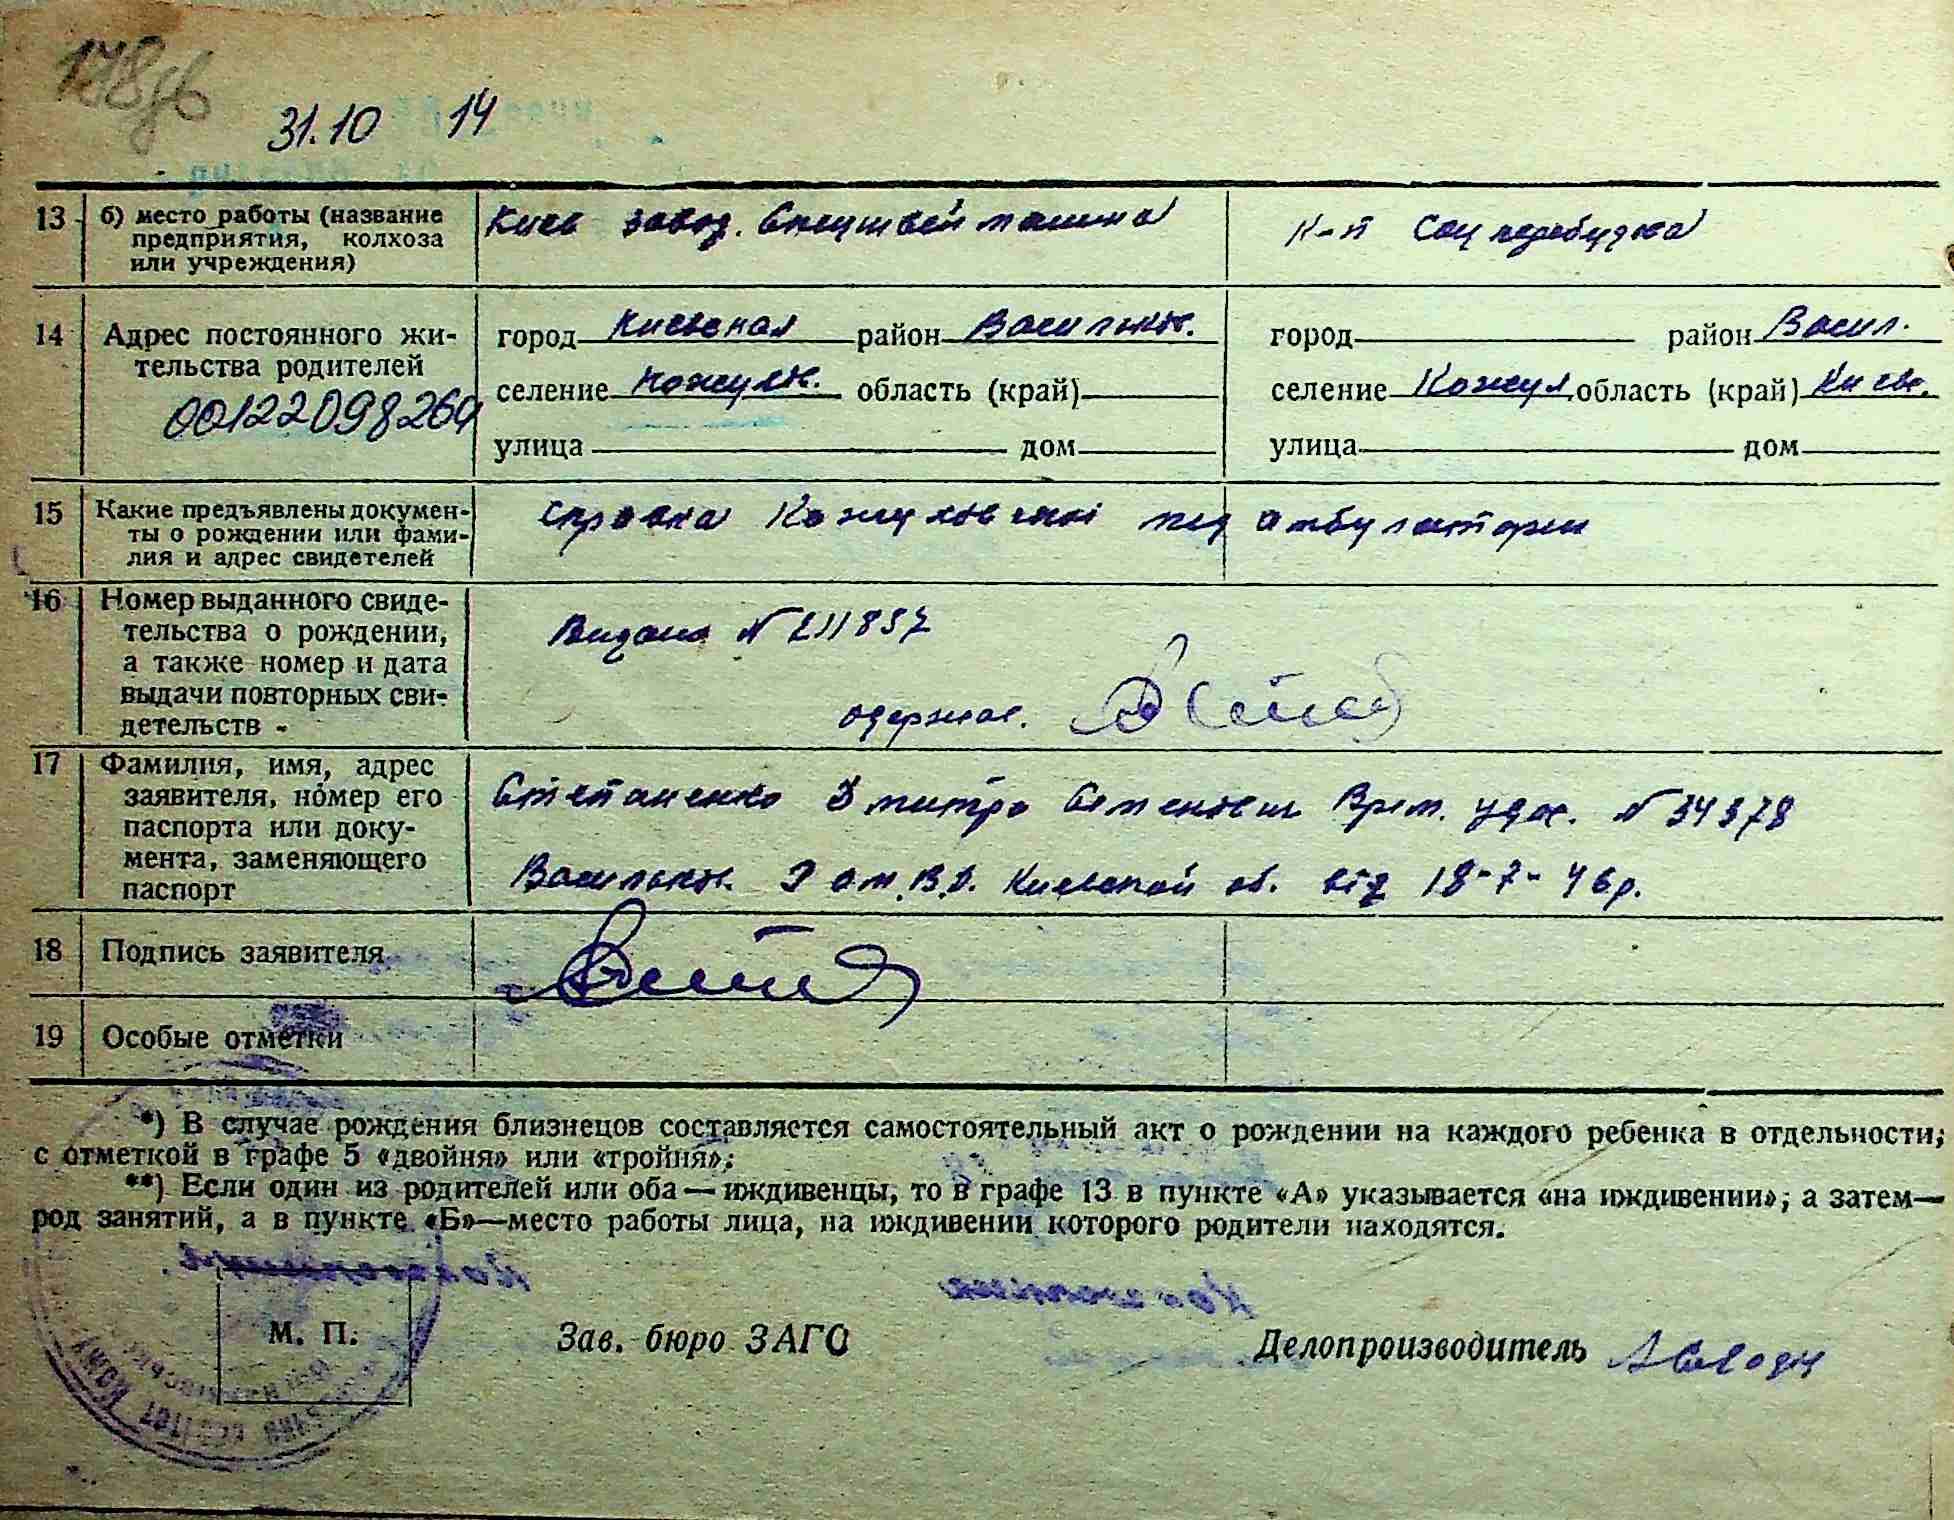 31.10 14
13 б) место работы (название предприятия, колхоза или учреждения)
Киев завод. Спецшвеймашина
К-п Соцперебудова
14 Адрес постоянного жительства родителей
00122098264
город Киевская район Васильков.
селение Кожухов. область (край)
улица дом
город район Васил.
селение Кожух. область (край) Киев.
улица дом
15 Какие предъявлены документы о рождении или фамилия и адрес свидетелей
справка Кожуховской мед амбулатории
16 Номер выданного свидетельства о рождении, а также номер и дата выдачи повторных свидетельств -
Видано № 211837
одержав.
17 Фамилия, имя, адрес заявителя, номер его паспорта или документа, заменяющего паспорт
Степаненко Дмитро Семенович Врем. удос. № 34378
Васильков. Р от. В.Д. Киевской об. від 18-7-46р.
18 Подпись заявителя
19 Особые отметки
*) В случае рождения близнецов составляется самостоятельный акт о рождении на каждого ребенка в отдельности,
с отметкой в графе 5 «двойня» или «тройня»;
**) Если один из родителей или оба — иждивенцы, то в графе 13 в пункте «А» указывается «на иждивении», а затем—
род занятий, а в пункте «Б»—место работы лица, на иждивении которого родители находятся.
М. П.
Зав. бюро ЗАГС
Делопроизводитель